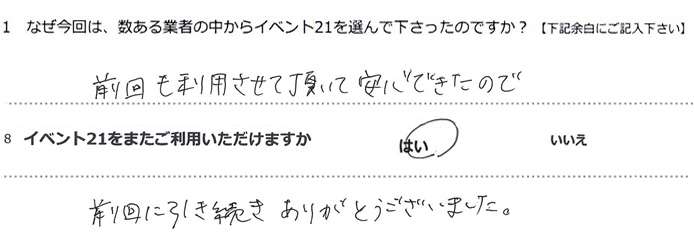 1 なぜ今回は、数ある業者の中からイベント21を選んで下さったのですか？【下記余白にご記入下さい】
前回も利用させて頂いて安心できたので
8 イベント21をまたご利用いただけますか はい いいえ
前回に引き続きありがとうございました。